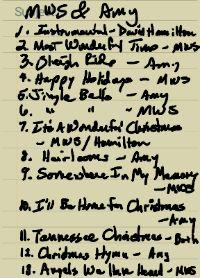 MWS & Amy
1. Instrumental - David Hamilton
2. Most Wonderful Time - MWS
3. Sleigh Ride - Amy
4. Happy Holidays - MWS
5. Jingle Bells - Amy
6. " " - MWS
7. It's A Wonderful Christmas
- MWS / Hamilton
8. Heirlooms - Amy
9. Somewhere In My Memory
- MWS
10. I'll Be Home for Christmas
- Amy
11. Tennessee Christmas - Both
12. Christmas Hymn - Amy
13. Angels We Have Heard - MWS